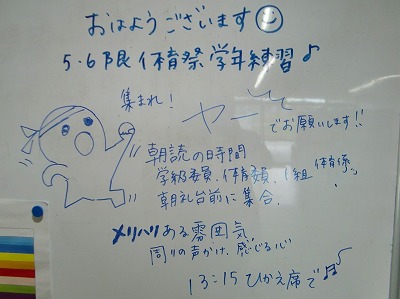 おはようございます
5・6限 体育祭学年練習♪
集まれ!
ヤー
でお願いします!!
朝読の時間
学級委員、体育委員、1組体育係
朝礼台前に集合.
メリハリある雰囲気
周りの声かけ、感じる心
13:15 ひかえ席で♬